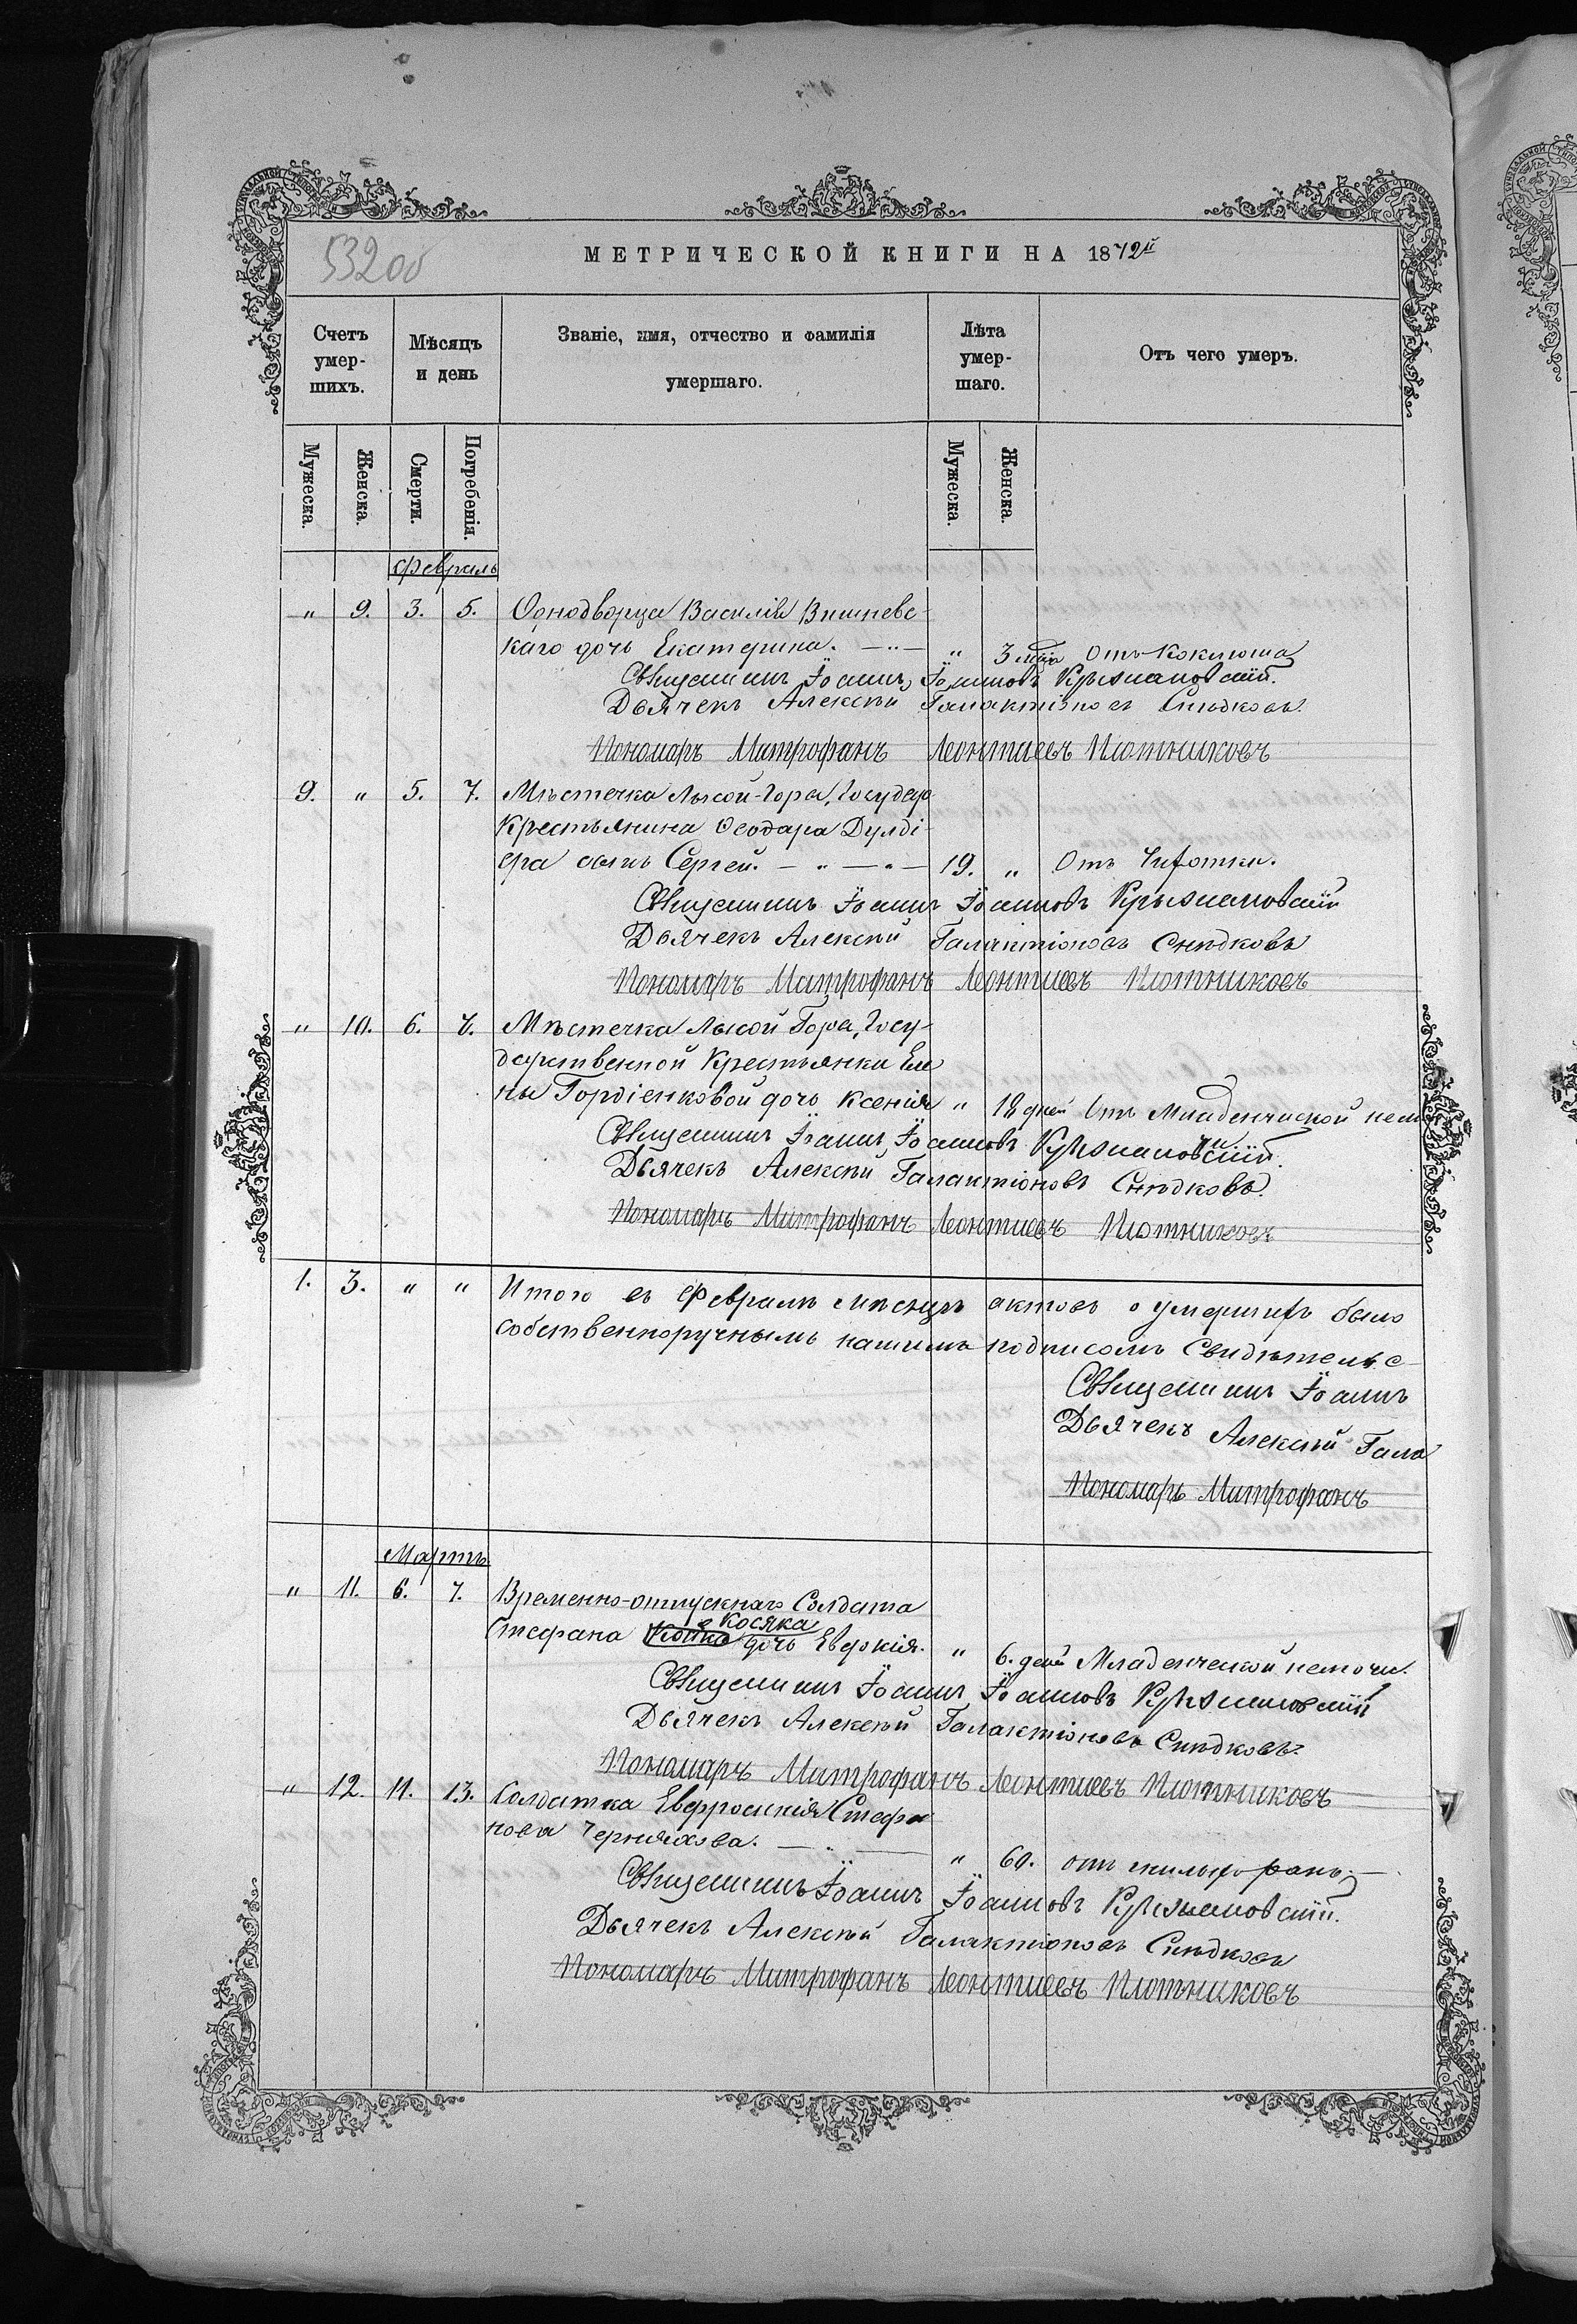 532 об
МЕТРИЧЕСКОЙ КНИГИ НА 1872й
Счетъ умер-шихъ.
Мѣсяцъ и день
Званіе, имя, отчество и фамилія умершаго.
Лѣта умер-шаго.
Отъ чего умеръ.
Мужеска. Женска. Смерти. Погребенія. Мужеска. Женска.
Февраль
„ 9. 3. 5. Однодворца Василія Вишневс-
каго дочь Екатерина. — „ — „ 3 мѣс. Отъ Коклюша
Священникъ Іоаннъ Іоанновъ Крыжановскій.
Дьячекъ Алексѣй Галактіоновъ Снѣдковъ.
Пономарь Митрофанъ Леонтиевъ Плотниковъ
9. „ 5. 7. Мѣстечка Лысой-Горы, Государ
Крестьянина Ѳеодора Дулді-
ера сынъ Сергей. — „ — „ — 19. „ Отъ Чихотки.
Священникъ Іоаннъ Іоанновъ Крыжановскій
Дьячекъ Алексѣй Галактіоновъ Снѣдковъ
Пономарь Митрофанъ Леонтиевъ Плотниковъ
„ 10. 6. 7. Мѣстечка Лысой Горы, Госу-
дарственной Крестьянки Еле
ны Гордіенковой дочь Ксенія „ 18 дней Отъ Младенческой немо
чи
Священникъ Іоаннъ Іоанновъ Крыжановскій.
Дьячекъ Алексѣй Галактіоновъ Снѣдковъ.
Пономарь Митрофанъ Леонтиевъ Плотниковъ
1. 3. „ „ Итого въ Февралѣ мѣсяцѣ актовъ о умершихъ было
собственноручнымъ нашимъ подписомъ Свидѣтельс-
Священникъ Іоаннъ
Дьячекъ Алексѣй Гала
Пономарь Митрофанъ
Мартъ
„ 11. 6. 7. Временно-отпускнаго Солдата
Косяка
Стефана дочь Евдокія. „ 6. дней Младенческой немочи.
Священникъ Іоаннъ Іоанновъ Крыжановскій
Дьячекъ Алексѣй Галактіоновъ Снѣдковъ.
Пономарь Митрофанъ Леонтиевъ Плотниковъ
„ 12. 11. 13. Солдатка Евфросинія Стефа
нова Черняхова. — „ — „ 60. отъ
Священникъ Іоаннъ Іоанновъ Крыжановскій.
Дьячекъ Алексѣй Галактіоновъ Снѣдковъ
Пономарь Митрофанъ Леонтиевъ Плотниковъ